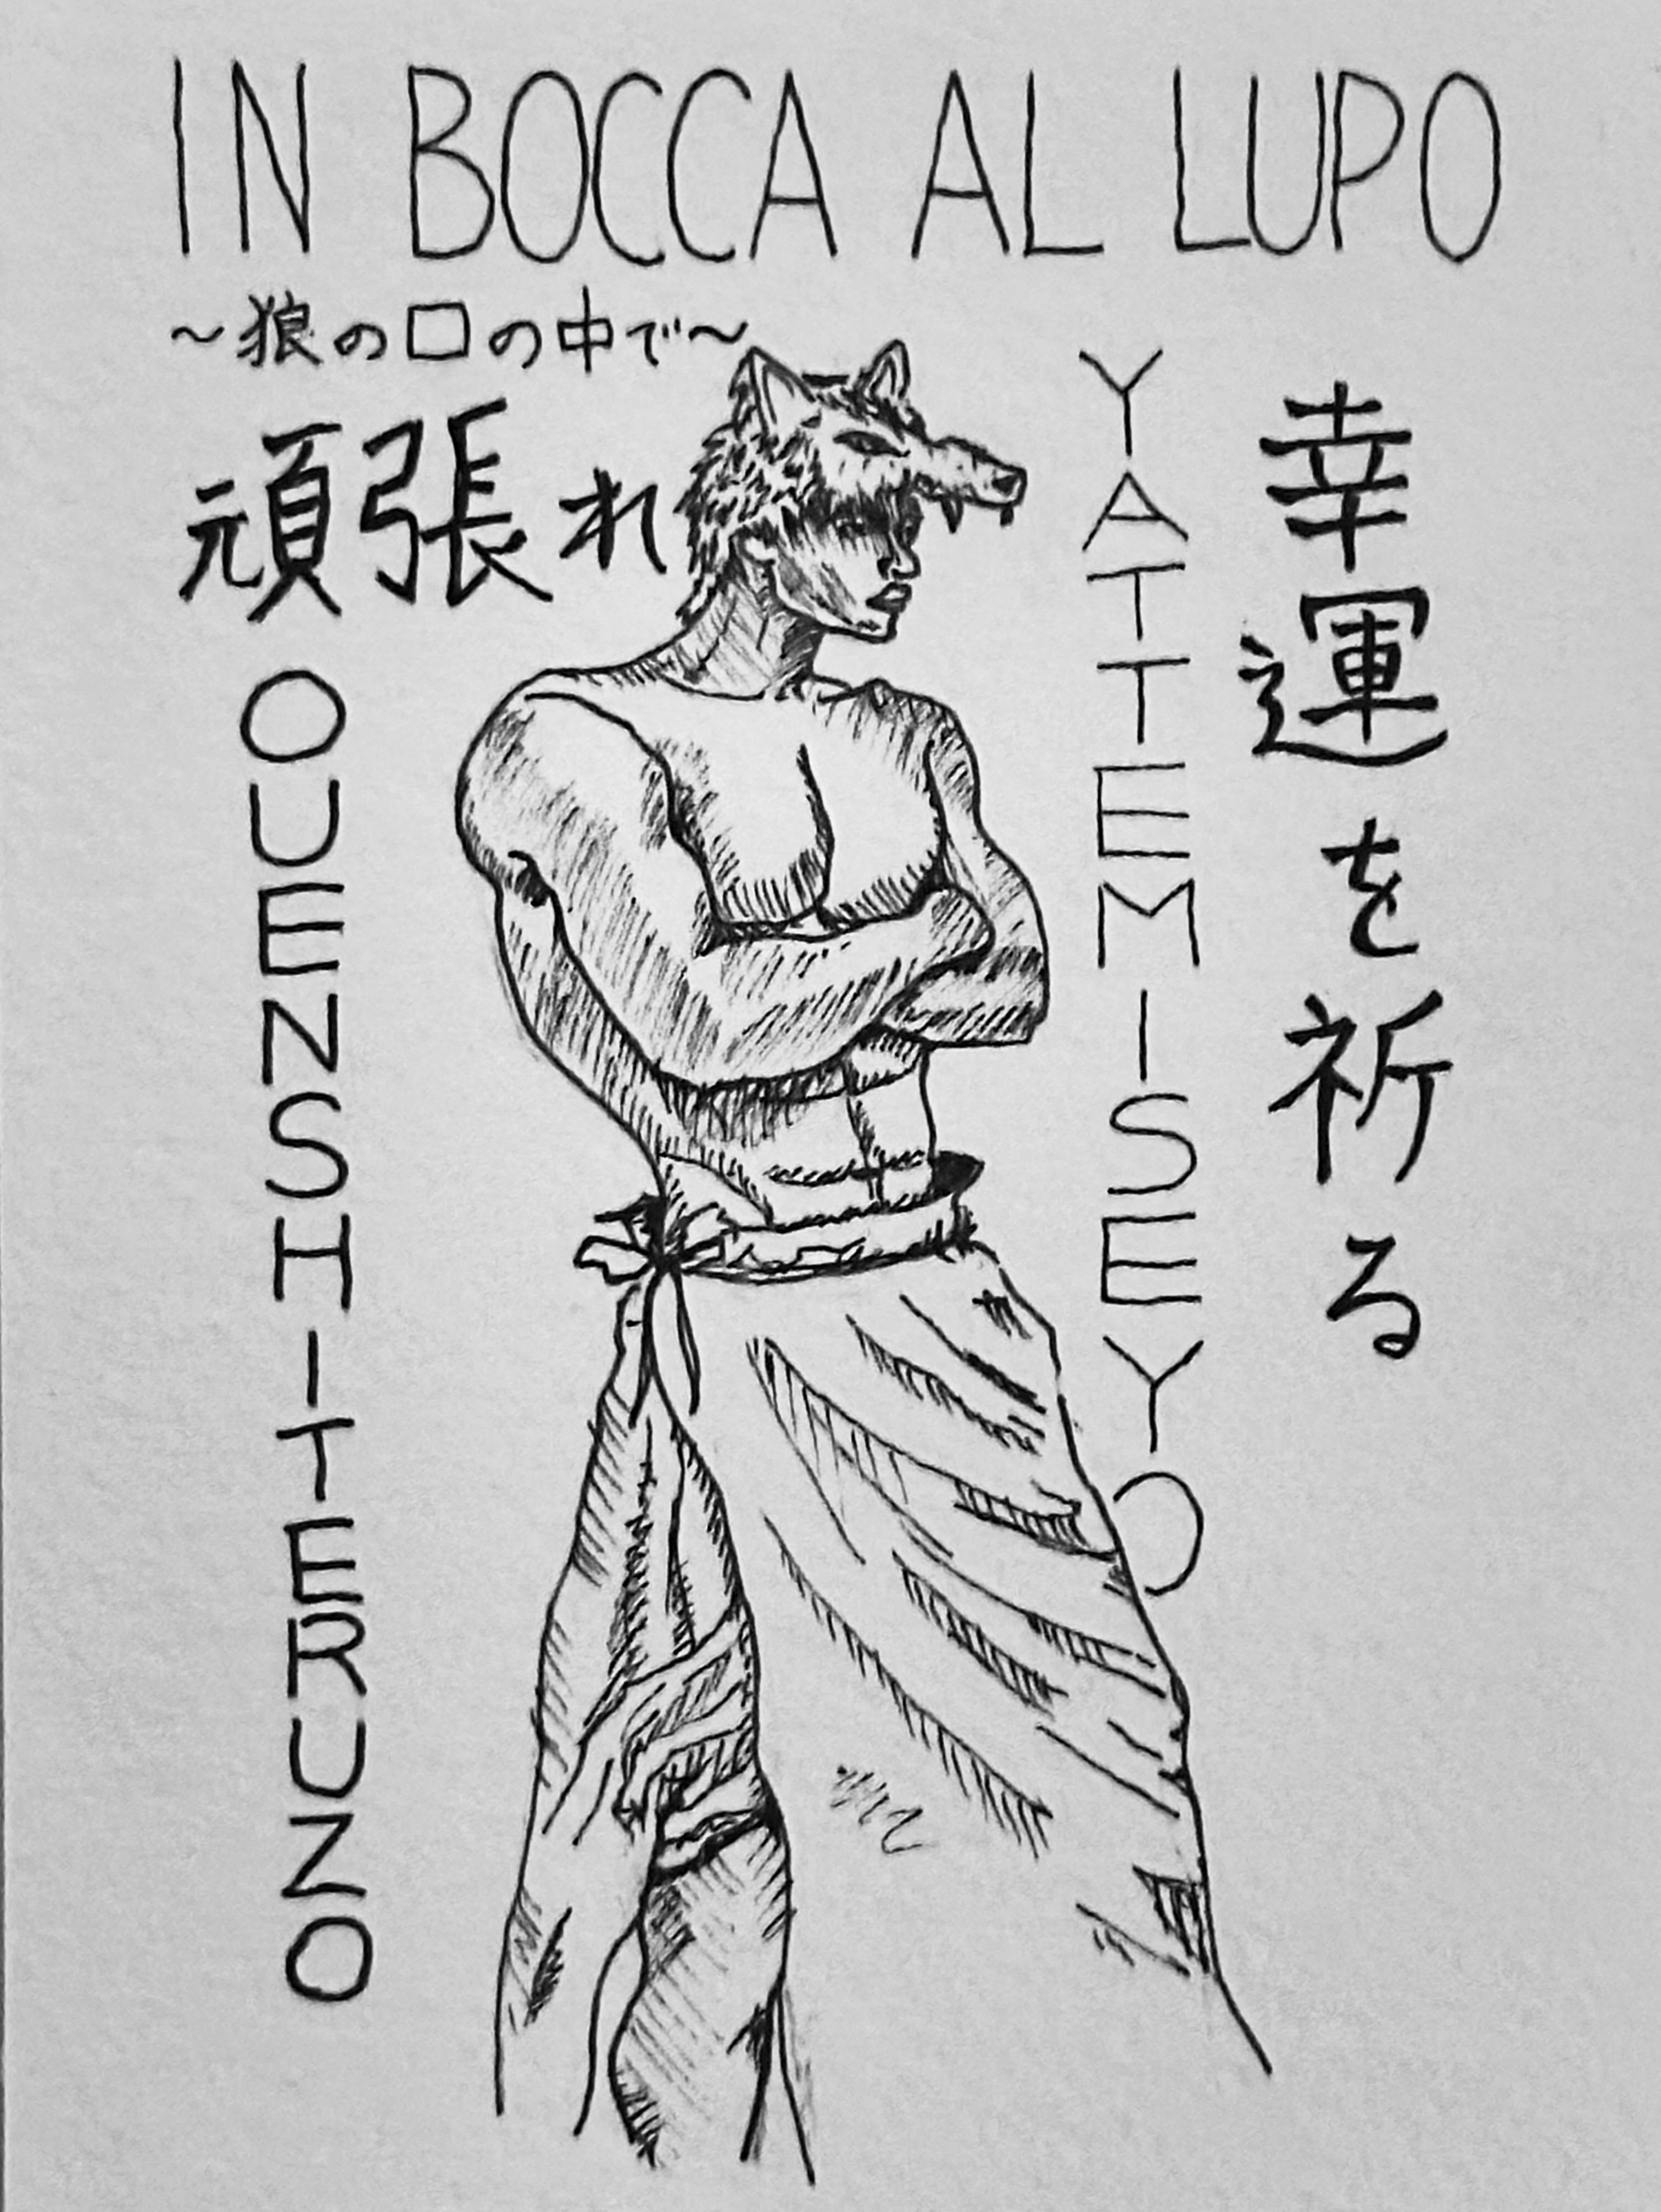 IN BOCCA AL LUPO
~狼の口の中で~
頑張れ
OUENSHITERUZO
YATTEMISEYO
幸運を祈る